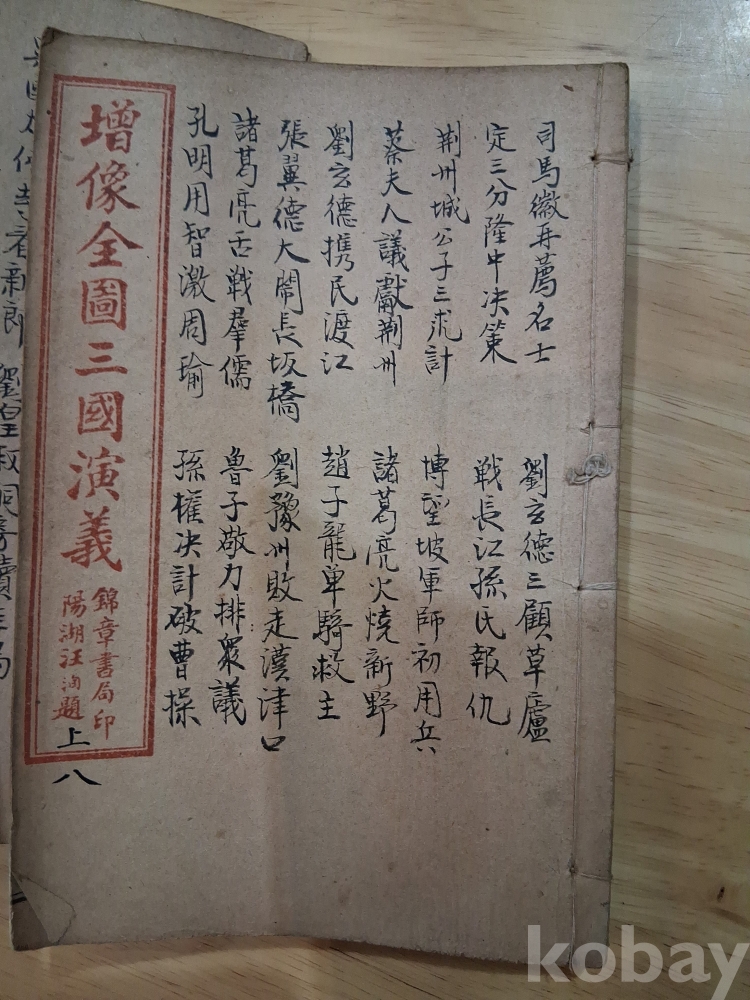 司馬徽再薦名士 劉玄德三顧草廬
定三分隆中决策 戦長江孫氏報仇
荆州城公子三求計 博望坡軍師初用兵
蔡夫人議獻荆州 諸葛亮火燒新野
劉玄德携民渡江 趙子龍单騎救主
張翼德大鬧長坂橋 劉豫州敗走漢津口
諸葛亮舌戦羣儒 魯子敬力排衆議
孔明用智激周瑜 孫權决計破曹操
增像全圖三國演義
錦章書局印
陽湖汪洵題
上
八
kobay